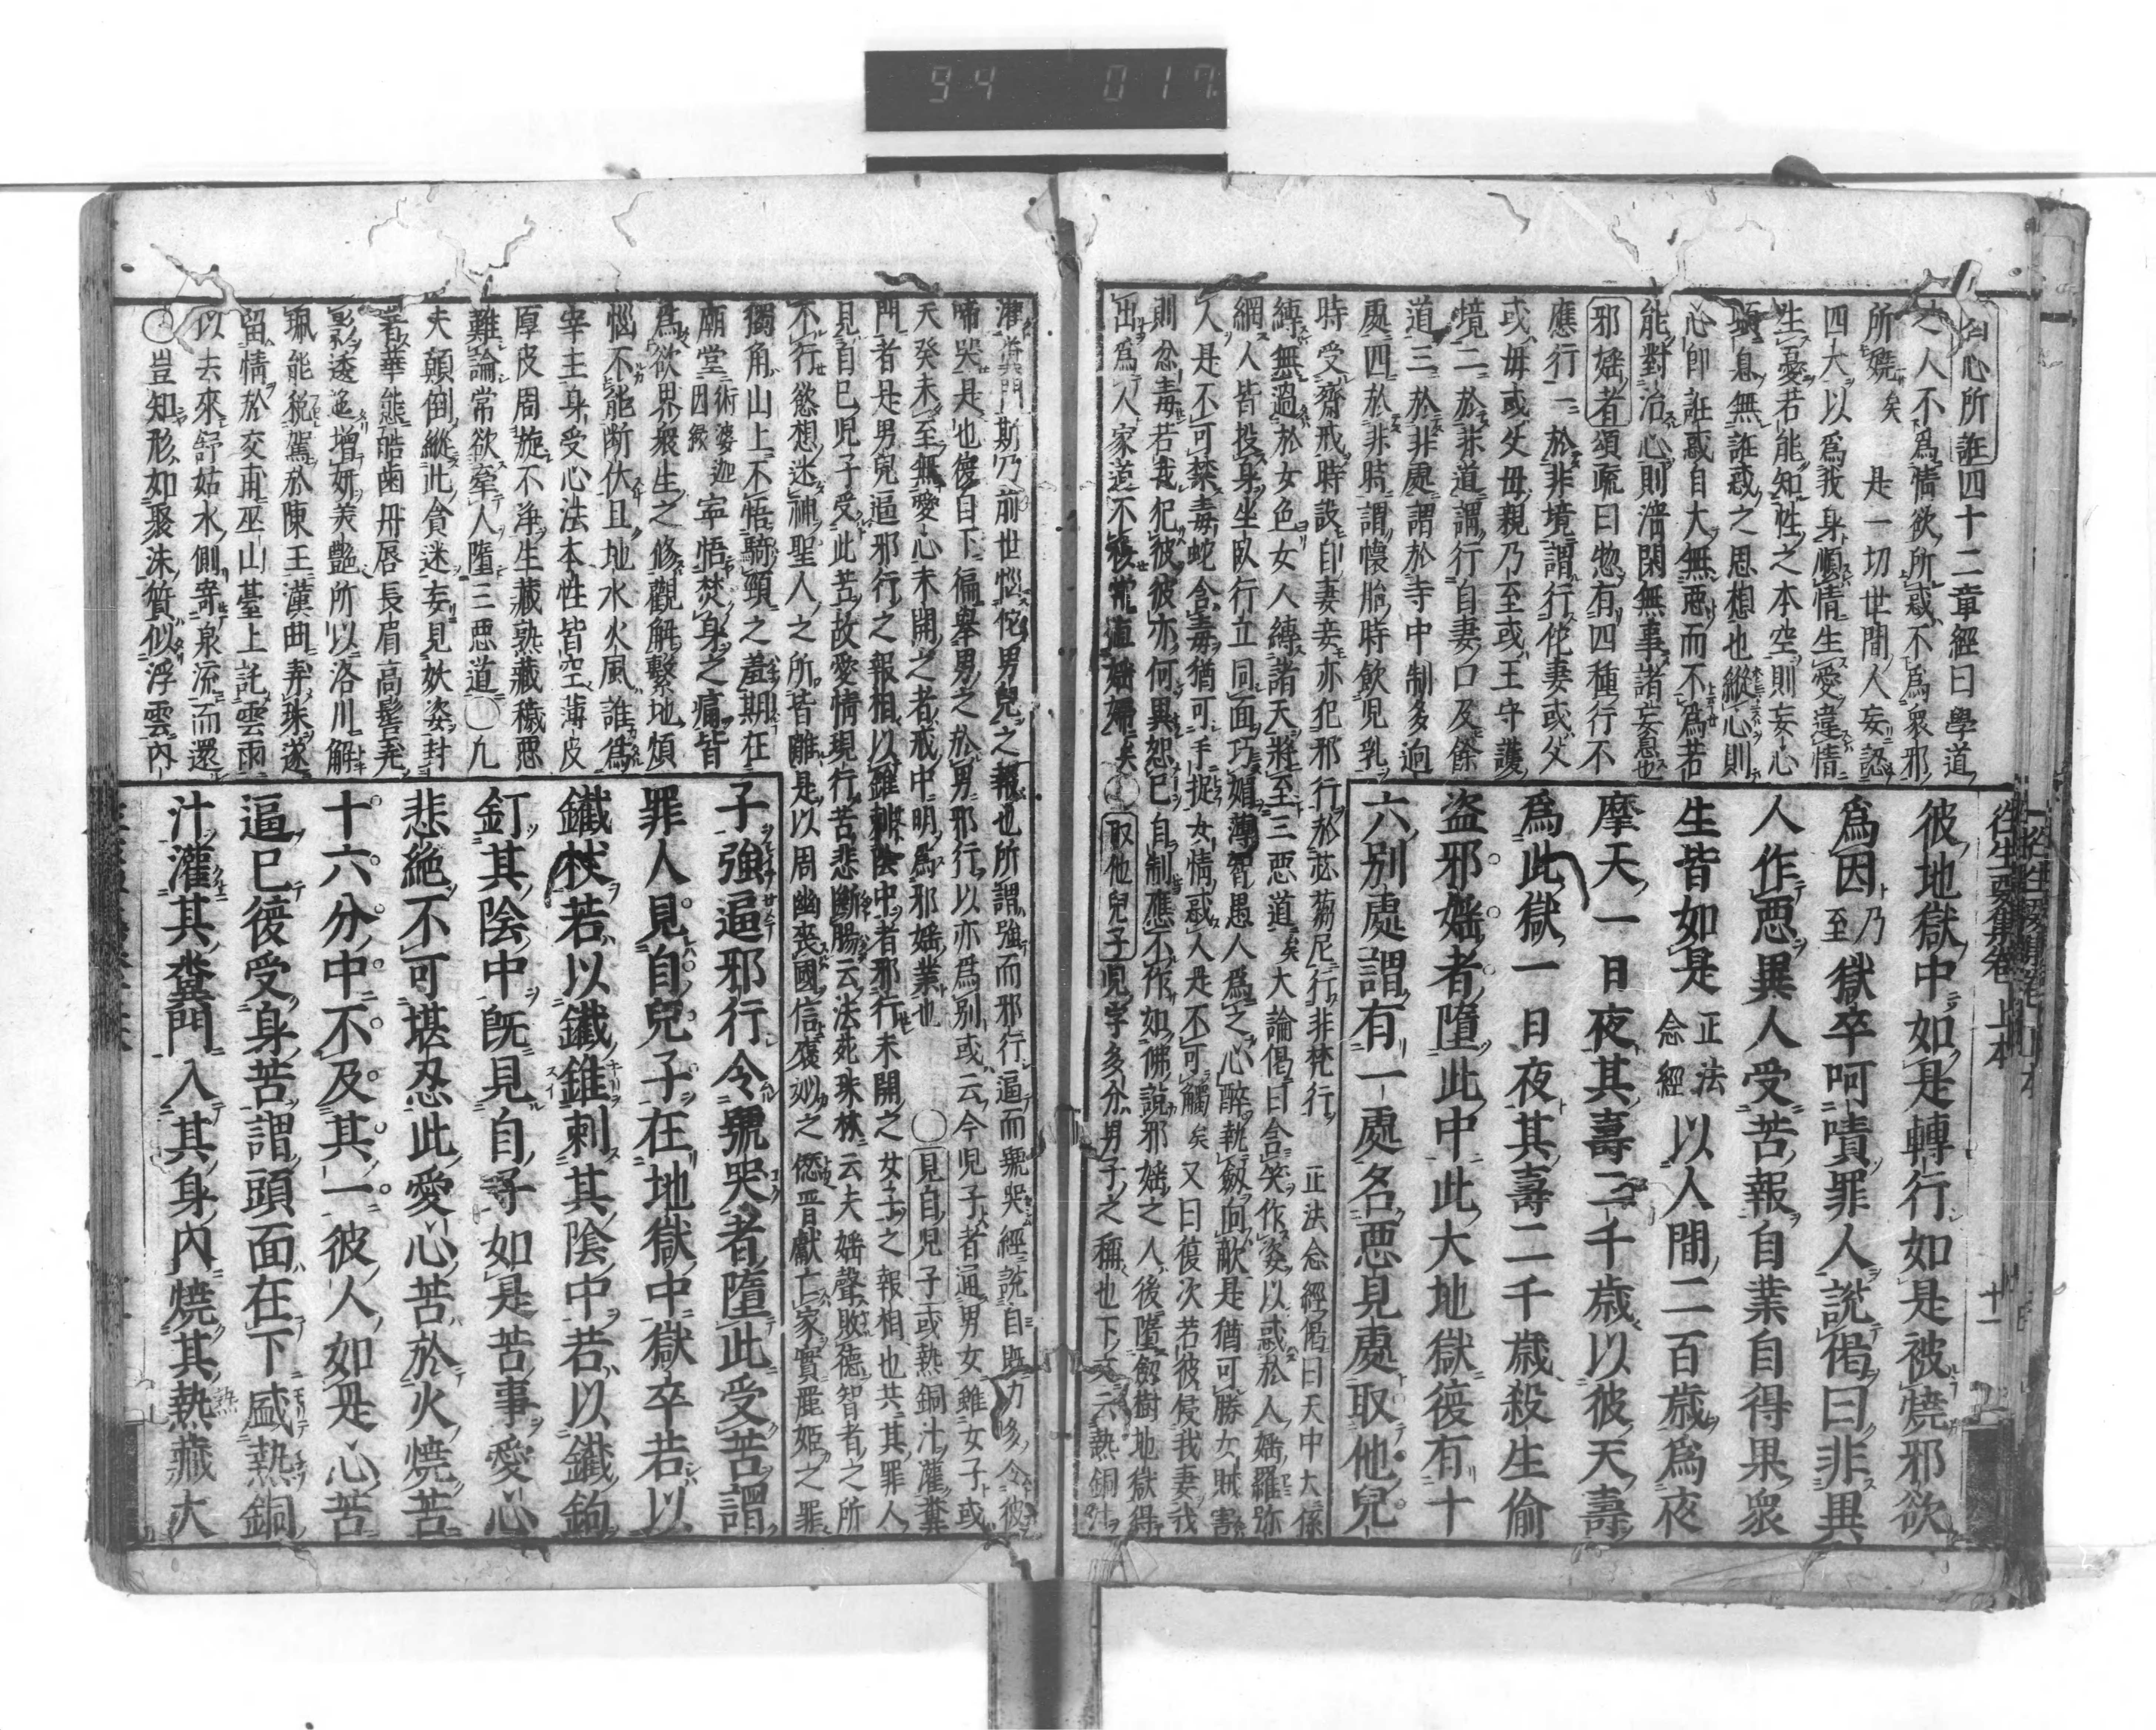 94 017
自心所誑四十二章經曰學道
之人不爲情欲所惑不爲衆邪
所嬈矣 是一切世間人妄認
四大以爲我身順情生愛違情
生憂若能知性之本空則妄心
頓息無誑惑之思想也縱心則
心卽誑惑自大無惡而不爲若
能對治心則澘閑無事諸妄息也
邪婬者頌疏曰惣有四種行不
應行一於非境謂行佗妻或父
或母或父母親乃至或王守護
境二於非道謂行自妻口及餘
道三於非處謂於寺中制多逈
處四於非時謂懷胎時飲児乳
時受齋戒時設自妻妾亦犯邪行於苾蒭尼行非梵行 正法念經偈曰天中大係
縛無過於女色女人縛諸天將至三惡道矣大論偈曰含笑作姿以惑於人婬羅弥
網人皆投身坐臥行立同面巧媚薄智愚人爲之心醉執劔向敵是猶可勝女賊害
人是不可禁毒蛇含毒猶可手捉女情惑人是不可觸矣又曰復次若彼侵我妻我
則忿毒若我犯彼彼亦何異恕已自制應不作如佛說邪婬之人後墮劔樹地獄得
出爲人家道不 婬婦矣 取他兒子見字多分男子之稱也下文云熱銅汁
往生要集卷上本 十一
彼地獄中如是轉行如是被燒邪欲
爲因乃至獄卒呵嘖罪人說偈曰非異
人作惡異人受苦報自業自得果衆
生皆如是正法念經以人間二百歲爲夜
摩天一日夜其壽二千歲以彼天壽
爲此獄一日夜其壽二千歲殺生偷
盜邪婬者墮此中此大地獄復有十
六別處謂有一處名惡見處取他兒
灌糞門斯乃前世惱佗男兒之報也所謂強而邪行逼而號哭經說自既力多令彼
啼哭是也復自下徧舉男之於男邪行以亦爲別或云今児子者通男女雖女子或
天癸未至無愛心未開之者戒中明爲邪婬業也 〇見自児子或熱銅汁灌糞
門者是男兒逼邪行之報相以錐刺陰中者邪行未開之女子之報相也共其罪人
見自已児子受此苦故愛情現行苦悲斷腸云法苑珠林云夫婬聲敗德智者之所
不行慾想迷神聖人之所皆離是以周幽喪國信襃姒之愆晋獻亡家實麗姫之罪
獨角山上不悟騎頸之羞期在
廟堂術婆迦因縁寧悟焚身之痛皆
爲欲界衆生之修觀解繫地煩
惱不能断伏且地水火風誰爲
宰主身受心法本性皆空薄皮
厚皮周旋不浄生藏熟藏穢惡
難論常欲牽人墮三惡道〇凢
夫顛倒縱此貪迷妄見妖姿封
著華態皓歯丹唇長眉高髻弄
影透迤增妍美艶所以洛川解
珮能稅駕於陳王漢曲弄珠遂
留情於交甫巫山臺上託雲雨
以去來舒姑水側寄泉流而還
〇豈知形如聚沫質似浮雲內
子強逼邪行令號哭者墮此受苦謂
罪人見自兒子在地獄中獄卒若以
鐵杖若以鐵錐刺其陰中若以鐵鉤
釘其陰中既見自子如是苦事愛心
悲絕不可堪忍此愛心苦於火燒苦
十六分中不及其一彼人如是心苦
逼已復受身苦謂頭面在下盛熱銅
汁灌其糞門入其身內燒其熟藏大